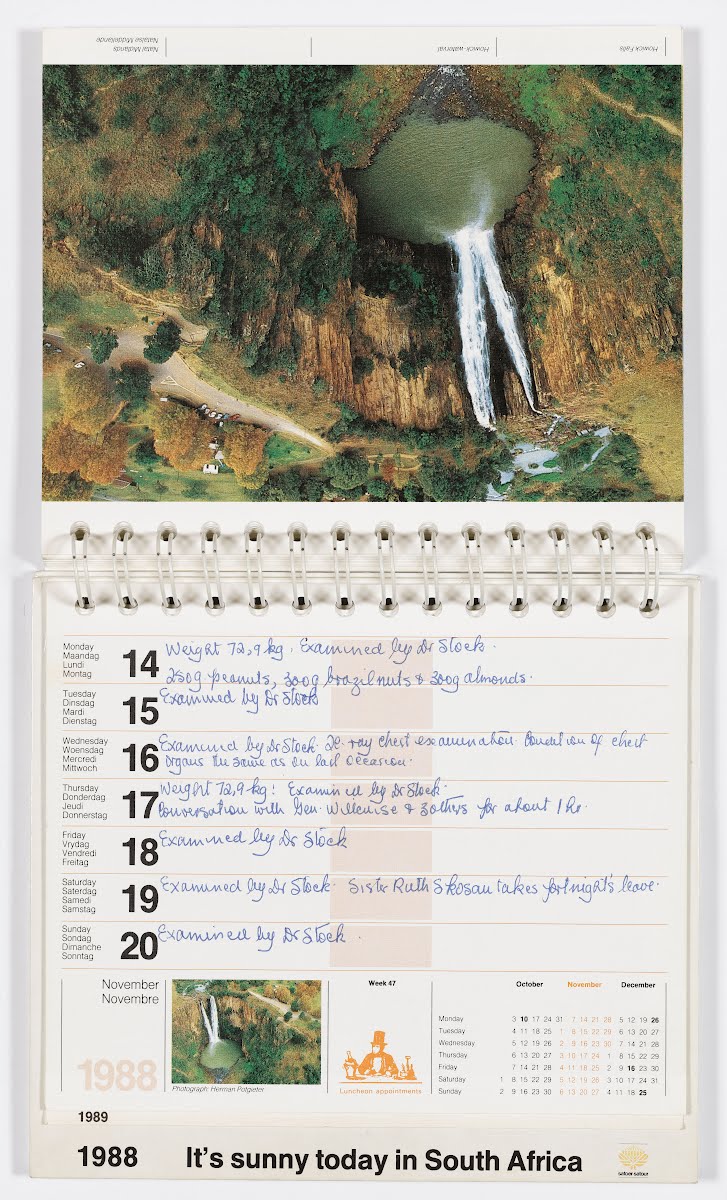 Natal Midlands
Natalse Middellande
Howick-waterval
Howick Falls
Monday
Maandag
Lundi
Montag
14
Weight 72,9 kg. Examined by Dr Stock.
250g peanuts, 300g brazil nuts & 300g almonds.
Tuesday
Dinsdag
Mardi
Dienstag
15
Examined by Dr Stock
Wednesday
Woensdag
Mercredi
Mittwoch
16
Examined by Dr Stock. X-ray chest examination. Condition of chest
organs the same as on last occasion.
Thursday
Donderdag
Jeudi
Donnerstag
17
Weight 72,9 kg: Examined by Dr Stock.
Conversation with Gen. Willemse & 3 others for about 1 hr.
Friday
Vrydag
Vendredi
Freitag
18
Examined by Dr Stock
Saturday
Saterdag
Samedi
Samstag
19
Examined by Dr Stock. Sister Ruth Skosan takes fortnight's leave.
Sunday
Sondag
Dimanche
Sonntag
20
Examined by Dr Stock.
November
Novembre
1988
Photograph: Herman Potgieter
Week 47
Luncheon appointments
October November December
Monday 3 10 17 24 31 7 14 21 28 5 12 19 26
Tuesday 4 11 18 25 1 8 15 22 29 6 13 20 27
Wednesday 5 12 19 26 2 9 16 23 30 7 14 21 28
Thursday 6 13 20 27 3 10 17 24 1 8 15 22 29
Friday 7 14 21 28 4 11 18 25 2 9 16 23 30
Saturday 1 8 15 22 29 5 12 19 26 3 10 17 24 31
Sunday 2 9 16 23 30 6 13 20 27 4 11 18 25
1989
1988 It's sunny today in South Africa
satoer·satour